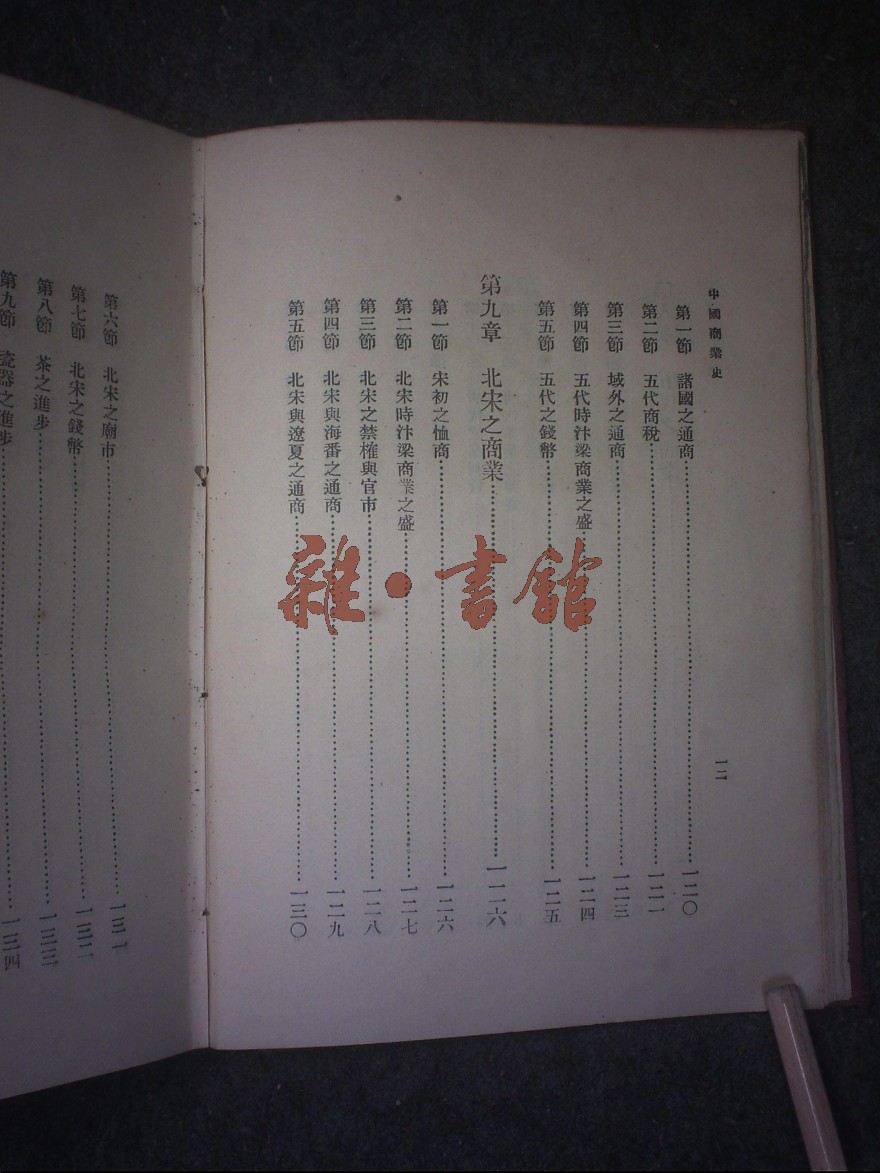 中國商業史
一二
第一節 諸國之通商……一二〇
第二節 五代商稅……一二一
第三節 域外之通商……一二三
第四節 五代時汴梁商業之盛……一二四
第五節 五代之錢幣……一二五
第九章 北宋之商業……一一六
第一節 宋初之恤商……一二六
第二節 北宋時汴梁商業之盛……一二七
第三節 北宋之禁榷與官市……一二八
第四節 北宋與海番之通商……一二九
第五節 北宋與遼夏之通商……一三〇
第六節 北宋之廟市……一三一
第七節 北宋之錢幣……一三二
第八節 茶之進步……一三三
第九節 瓷器之進步……一三四
雜·書館